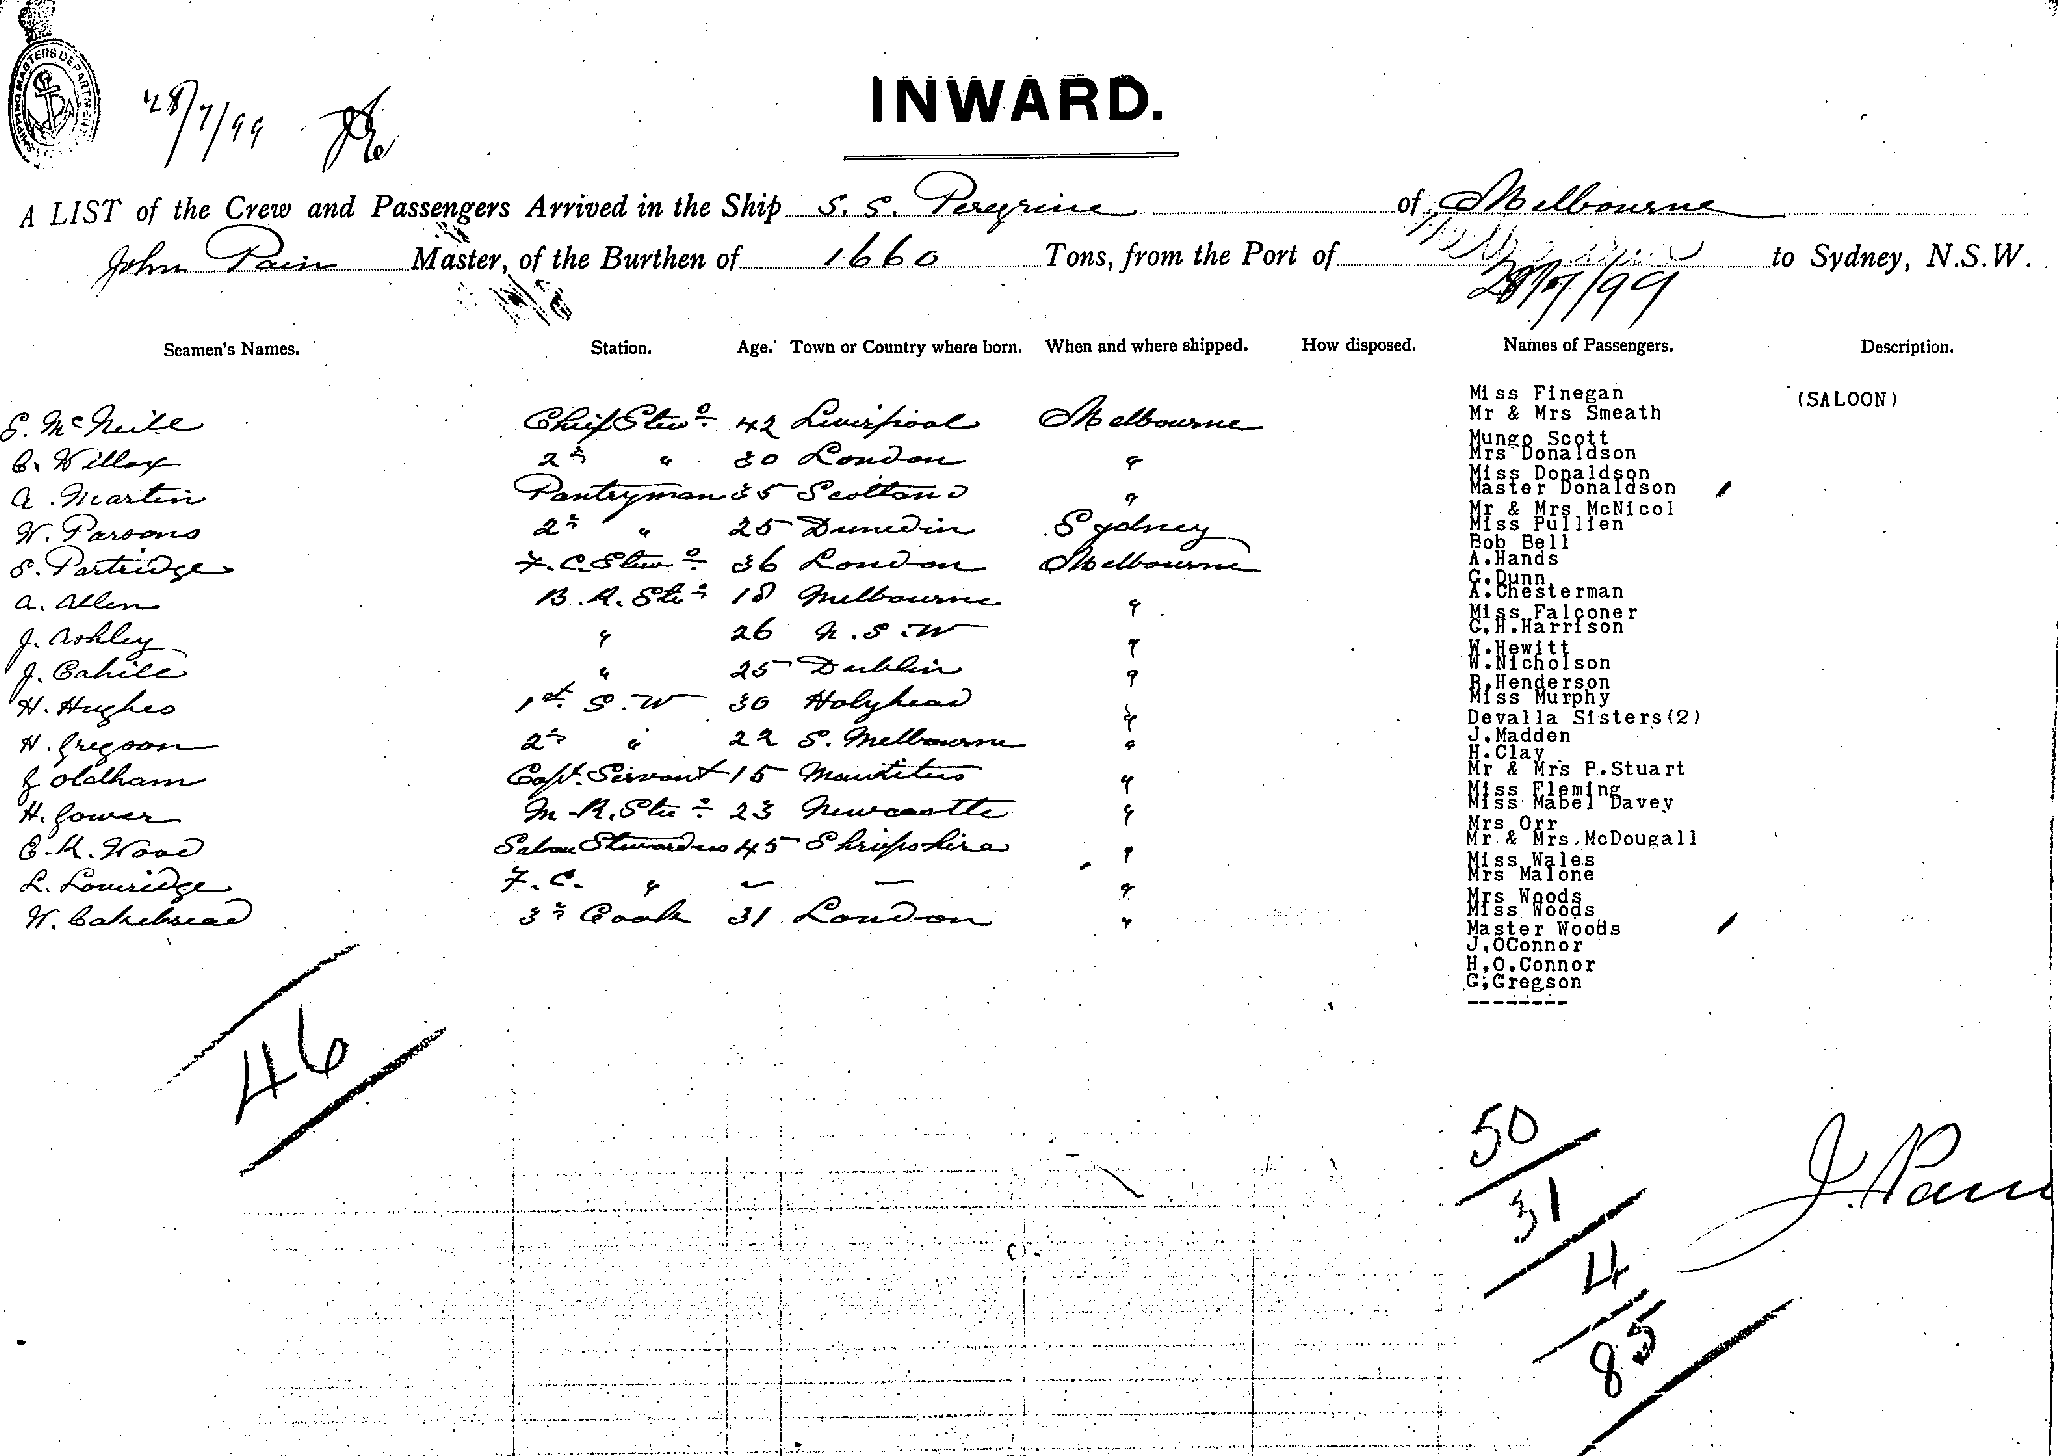 SHIPPING MASTERS DEPARTMENT
28/7/99
INWARD.
A LIST of the Crew and Passengers Arrived in the Ship S. S. Peregrine of Melbourne
John Pain Master, of the Burthen of 1660 Tons, from the Port of Melbourne to Sydney, N.S.W.
28/7/99
Seamen's Names. Station. Age. Town or Country where born. When and where shipped. How disposed. Names of Passengers. Description.
E. McNeill Chief Stewd 42 Liverpool Melbourne
C. Willox 2nd " 30 London "
A. Martin Pantryman 35 Scotland "
W. Parsons 2nd " 25 Dunedin Sydney
S. Partridge F.C. Stewd 36 London Melbourne
A. Allen B.R. Std 18 Melbourne "
J. Ashley " 26 N.S.W "
J. Cahill " 25 Dublin "
H. Hughes 1st S.W 30 Holyhead "
H. Gregson 2nd " 22 S. Melbourne "
J Oldham Capt. Servant 15 Mauritius "
H. Gower M.R. Std 23 Newcastle "
C. A. Wood Saloon Stewardess 45 Shropshire "
L. Lowridge F.C. " — — "
W. Cakebread 3rd Cook 31 London "
46
Miss Finegan (SALOON)
Mr & Mrs Smeath
Mungo Scott
Mrs Donaldson
Miss Donaldson
Master Donaldson
Mr & Mrs McNicol
Miss Pullien
Bob Bell
A.Hands
G.Dunn
A.Chesterman
Miss Falconer
G.H.Harrison
W.Hewitt
W.Nicholson
R.Henderson
Miss Murphy
Devalla Sisters(2)
J.Madden
H.Clay
Mr & Mrs P.Stuart
Miss Fleming
Miss Mabel Davey
Mrs Orr
Mr & Mrs.McDougall
Miss Wales
Mrs Malone
Mrs Woods
Miss Woods
Master Woods
J.OConnor
H.O.Connor
G.Gregson
--------
50
31
4
85
J. Pain